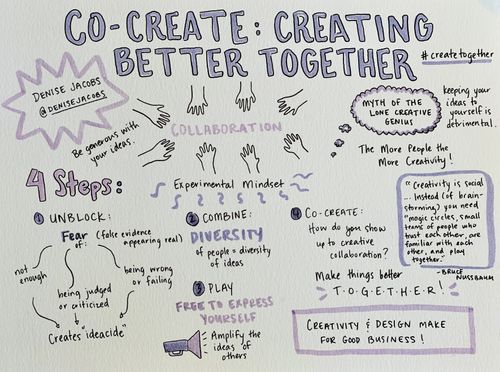 CO-CREATE: CREATING
BETTER TOGETHER
#createtogether
DENISE JACOBS
@DENISEJACOBS
Be generous with
your ideas.
COLLABORATION
MYTH OF THE
LONE CREATIVE
GENIUS
keeping your
ideas to
yourself is
detrimental.
The More People the
More Creativity!
4 Steps:
Experimental Mindset
1 UNBLOCK:
Fear (false evidence
of: appearing real)
not
enough
being judged
or criticized
being wrong
or failing
Creates "ideacide"
2 COMBINE:
DIVERSITY
of people = diversity
of ideas
3 PLAY
FREE TO EXPRESS
YOURSELF
Amplify the
ideas of
others
4 CO-CREATE:
How do you show
up to creative
collaboration?
Make things better
T·O·G·E·T·H·E·R!
"Creativity is social
... Instead (of brain-
storming) you need
"magic circles, small
teams of people who
trust each other, are
familiar with each
other, and play
together."
- BRUCE
NUSSBAUM
CREATIVITY & DESIGN MAKE
FOR GOOD BUSINESS!